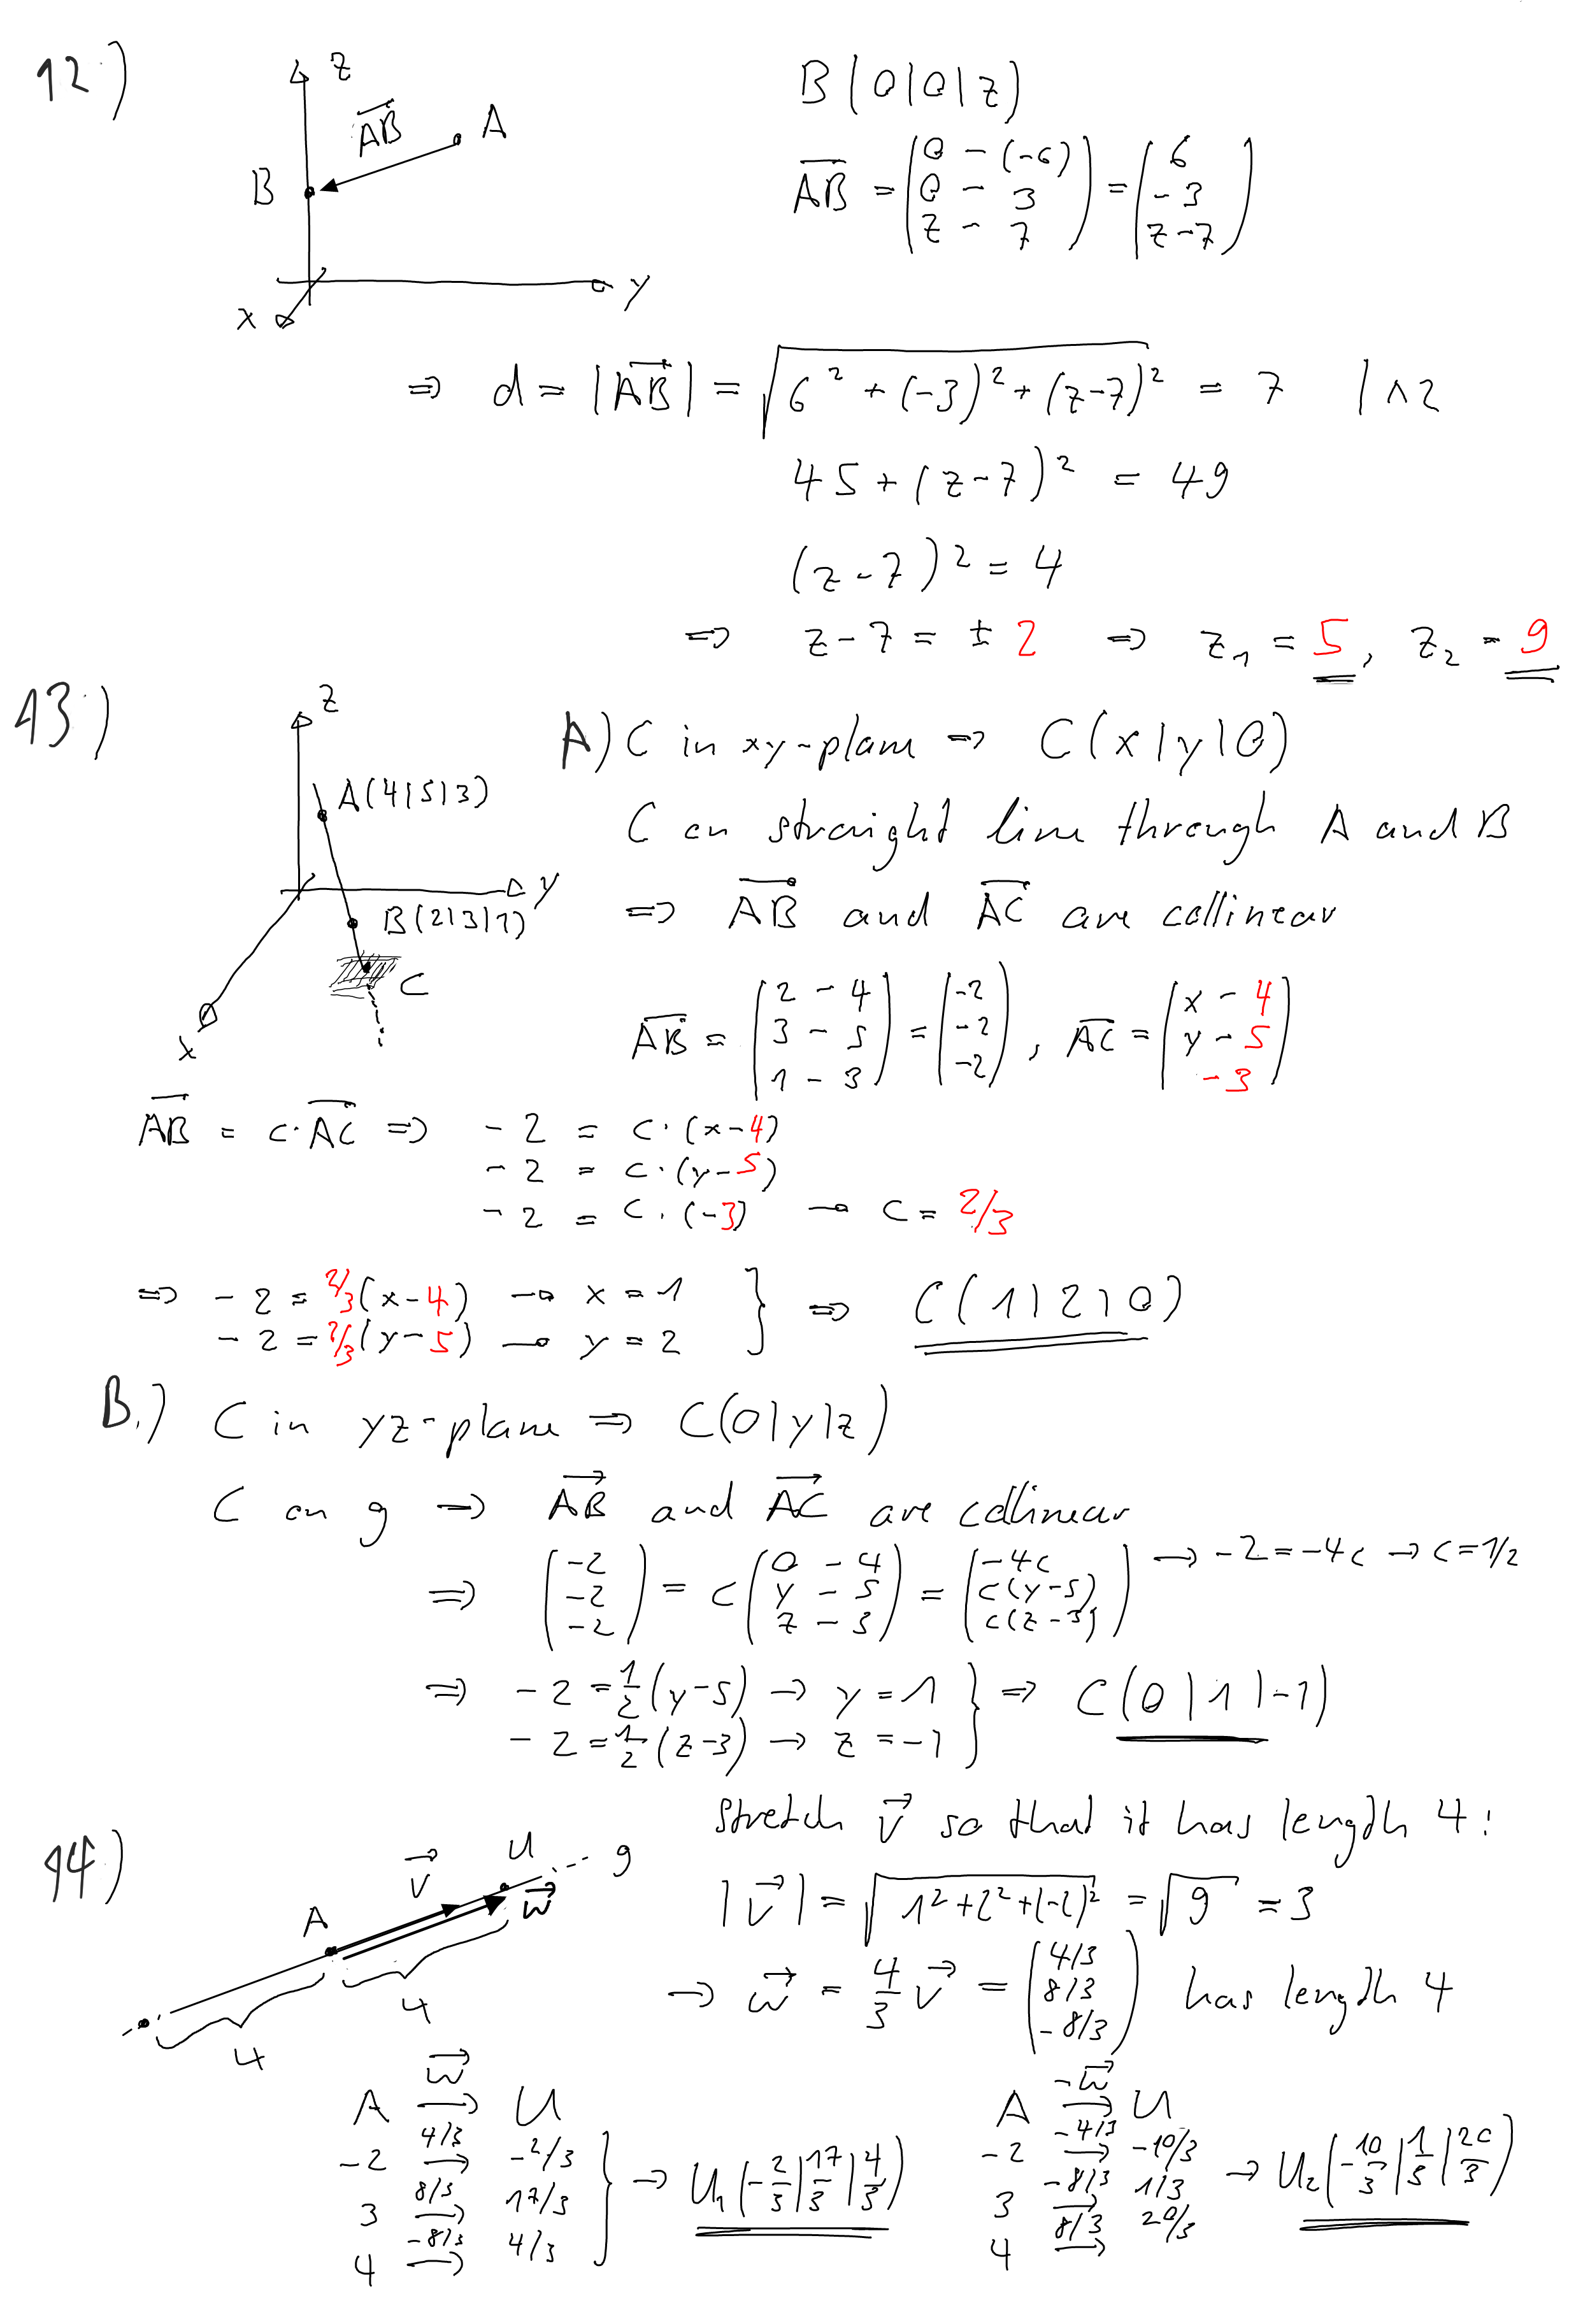 12.)
z
AB
A
B
y
x
B(0|0|z)
AB = (0 - (-6) 0 - 3 z - 7) = (6 -3 z-7)
⇒ d = |AB| = √(6² + (-3)² + (z-7)²) = 7 | ^2
45 + (z-7)² = 49
(z-7)² = 4
⇒ z-7 = ± 2 ⇒ z₁ = 5, z₂ = 9
13.)
z
A(4|5|3)
y
B(2|3|1)
C
x
A) C in xy-plane ⇒ C(x|y|0)
C on straight line through A and B
⇒ AB and AC are collinear
AB = (2 - 4 3 - 5 1 - 3) = (-2 -2 -2), AC = (x - 4 y - 5 -3)
AB = c·AC ⇒ -2 = c·(x-4)
-2 = c·(y-5)
-2 = c·(-3) → c = 2/3
⇒ -2 = 2/3(x-4) → x = 1
-2 = 2/3(y-5) → y = 2 } ⇒ C(1|2|0)
B.) C in yz-plane ⇒ C(0|y|z)
C on g ⇒ AB and AC are collinear
⇒ (-2 -2 -2) = c(0 - 4 y - 5 z - 3) = (-4c c(y-5) c(z-3)) → -2 = -4c → c = 1/2
⇒ -2 = 1/2(y-5) → y = 1
-2 = 1/2(z-3) → z = -1 } ⇒ C(0|1|-1)
14.)
A
v
U
g
w
4
4
stretch v so that it has length 4:
|v| = √(1²+2²+(-2)²) = √9 = 3
→ w = 4/3 v = (4/3 8/3 -8/3) has length 4
A w→ U
-2 4/3→ -2/3
3 8/3→ 17/3
4 -8/3→ 4/3
} → U₁(-2/3|17/3|4/3)
A -w→ U
-2 -4/3→ -10/3
3 -8/3→ 1/3
4 8/3→ 20/3
→ U₂(-10/3|1/3|20/3)